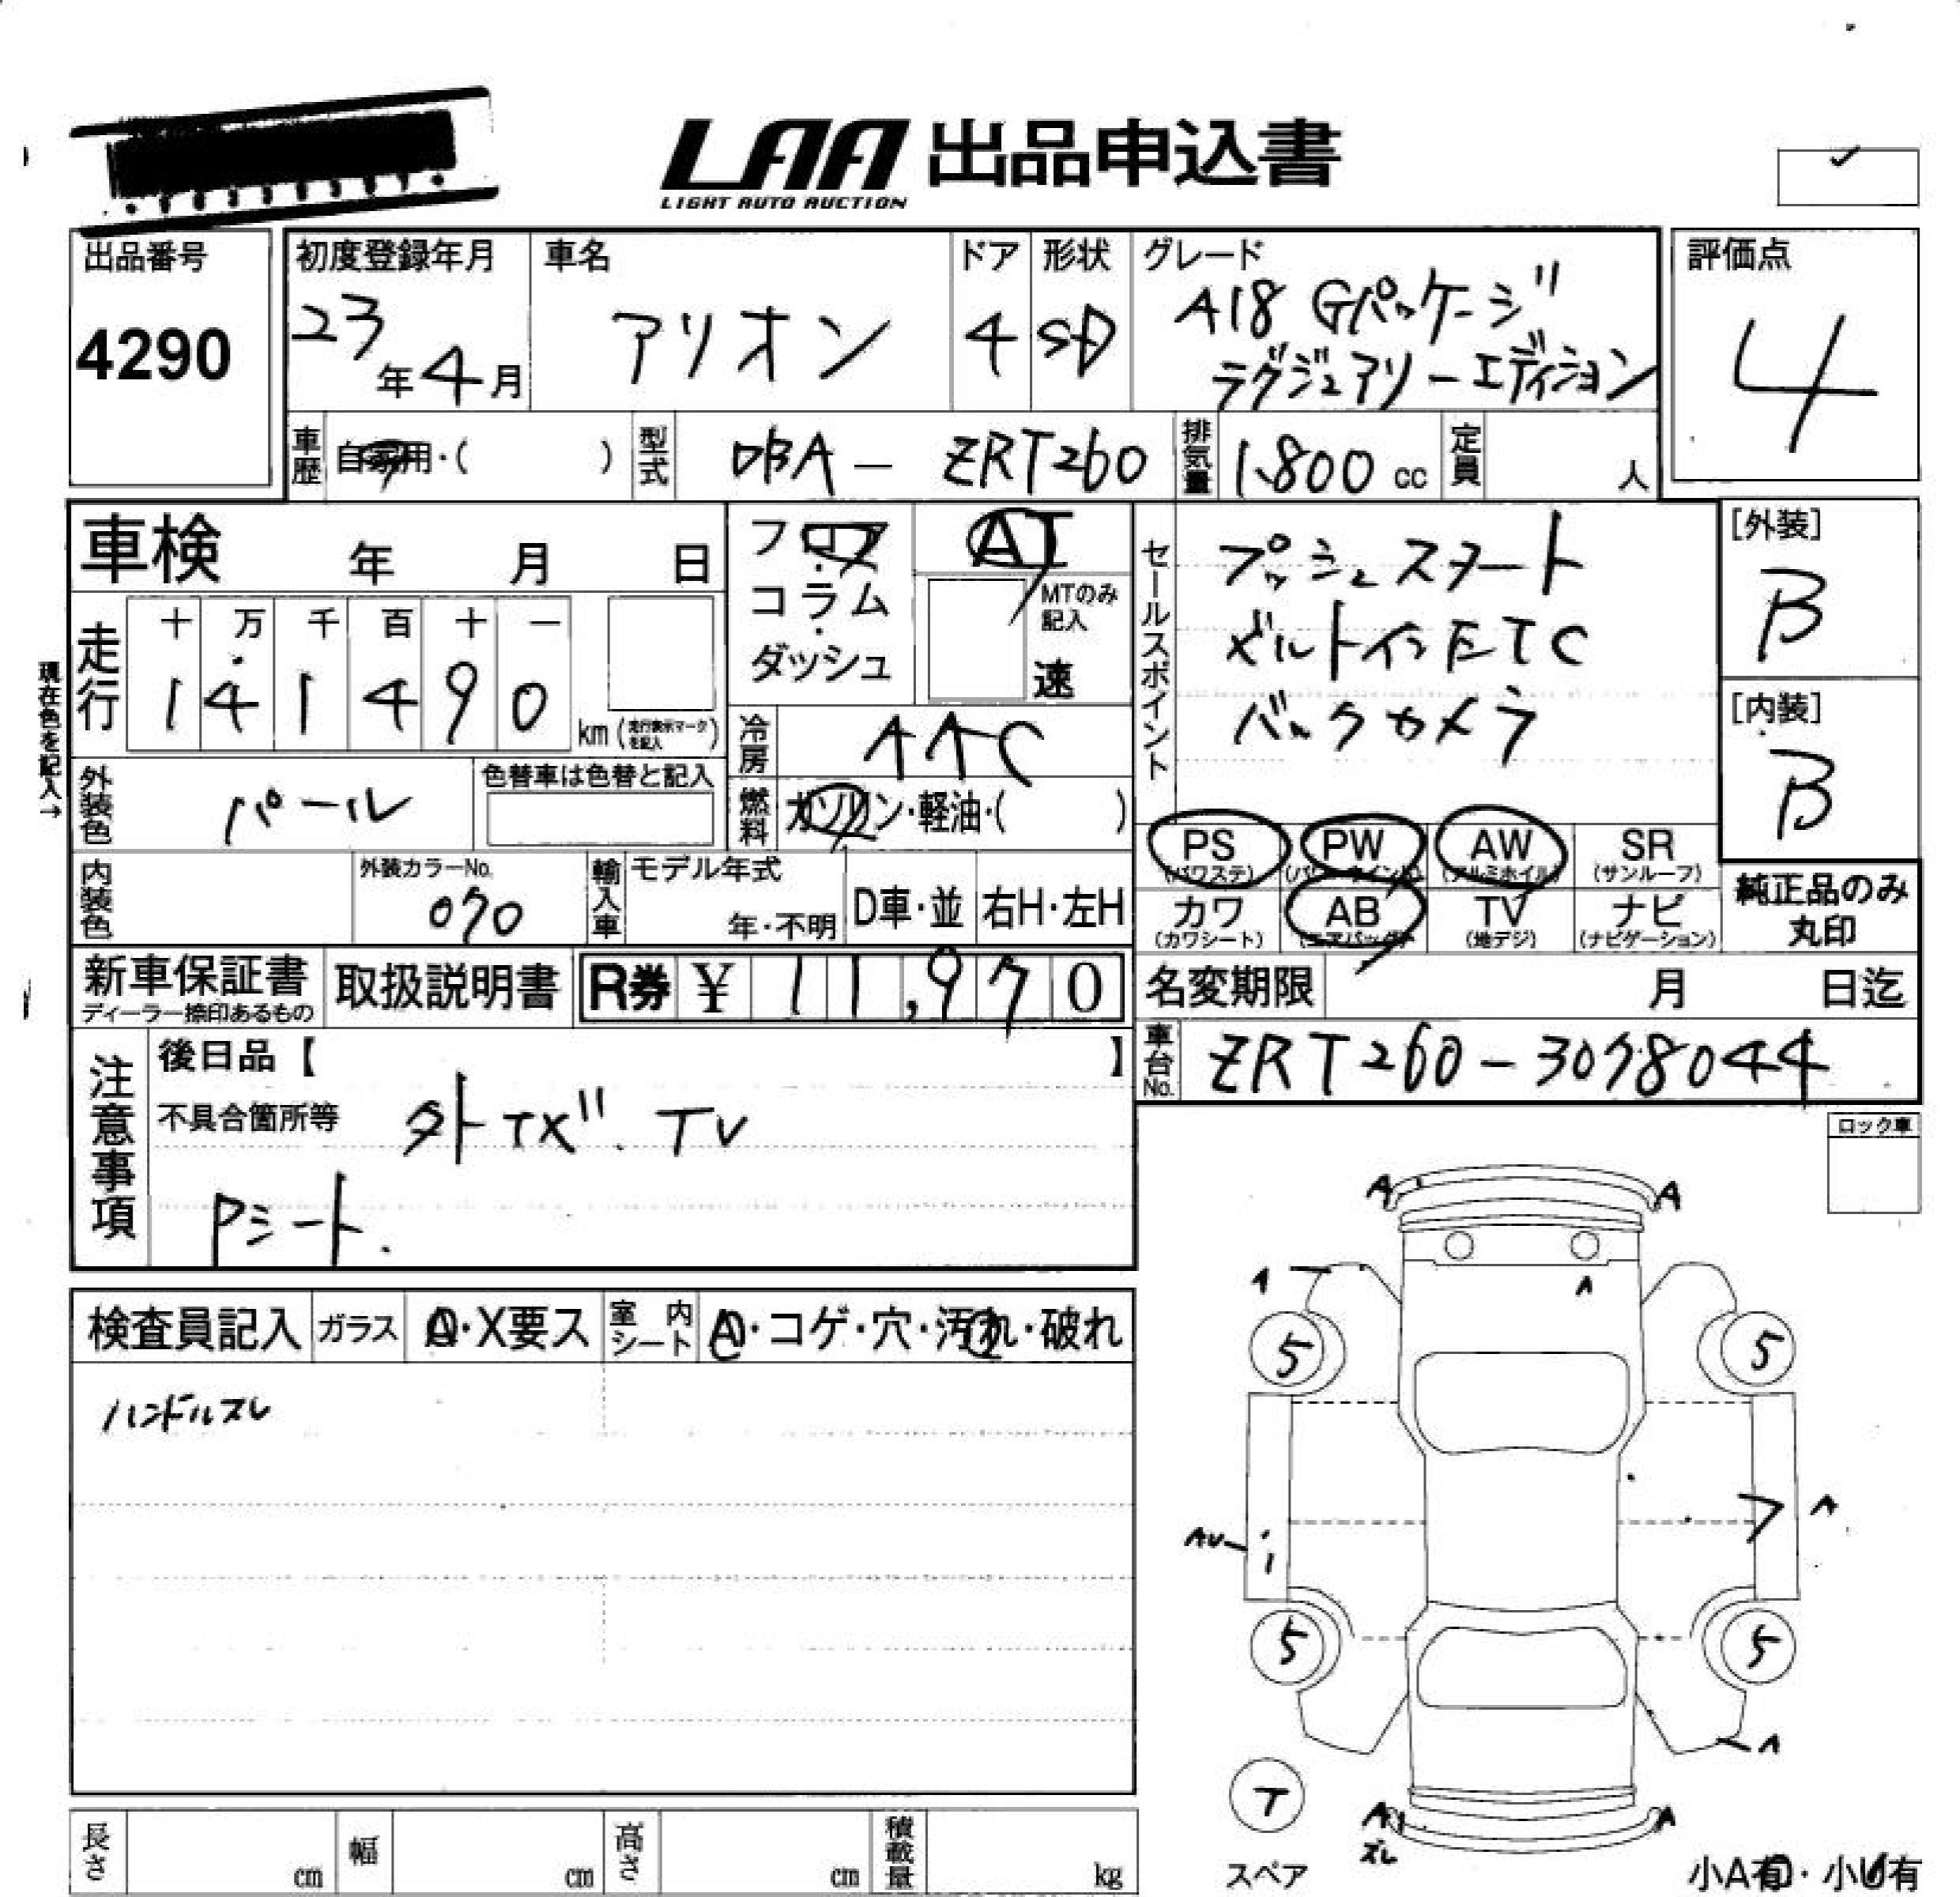 LAA 出品申込書
LIGHT AUTO AUCTION
出品番号
4290
初度登録年月
23年4月
車名
アリオン
ドア
4
形状
SD
グレード
A18 Gパッケージ
ラグジュアリーエディション
評価点
4
車歴 自家用・( )
型式 DBA - ZRT260
排気量 1.800 cc
定員 人
車検 年 月 日
フロア・コラム・ダッシュ
AT
MTのみ記入
速
セールスポイント
プッシュスタート
ビルトインETC
バックカメラ
[外装]
B
[内装]
B
現在色を記入→
走行
十 万 千 百 十 一
1 4 1 4 9 0 km (走行表示マークを記入)
冷房 AAC
外装色 パール
色替車は色替と記入
燃料 ガソリン・軽油・( )
PS (パワステ)
PW (パワーウインド)
AW (アルミホイル)
SR (サンルーフ)
内装色
外装カラーNo.
070
輸入車
モデル年式
年・不明
D車・並
右H・左H
カワ (カワシート)
AB (エアバッグ)
TV (地デジ)
ナビ (ナビゲーション)
純正品のみ
丸印
新車保証書
ディーラー捺印あるもの
取扱説明書
R券 ¥ 11,970
名変期限 月 日迄
車台No. ZRT260-3078044
注意事項
後日品【 】
不具合箇所等 外TX゛. TV
Pシート.
ロック車
検査員記入
ガラス A・X要ス
室内シート A・コゲ・穴・汚れ・破れ
ハンドルスレ
A A
A A
5 5
A
AU
5 5
A
T
スペア
A A
ズレ
小A有・小U有
長さ cm
幅 cm
高さ cm
積載量 kg